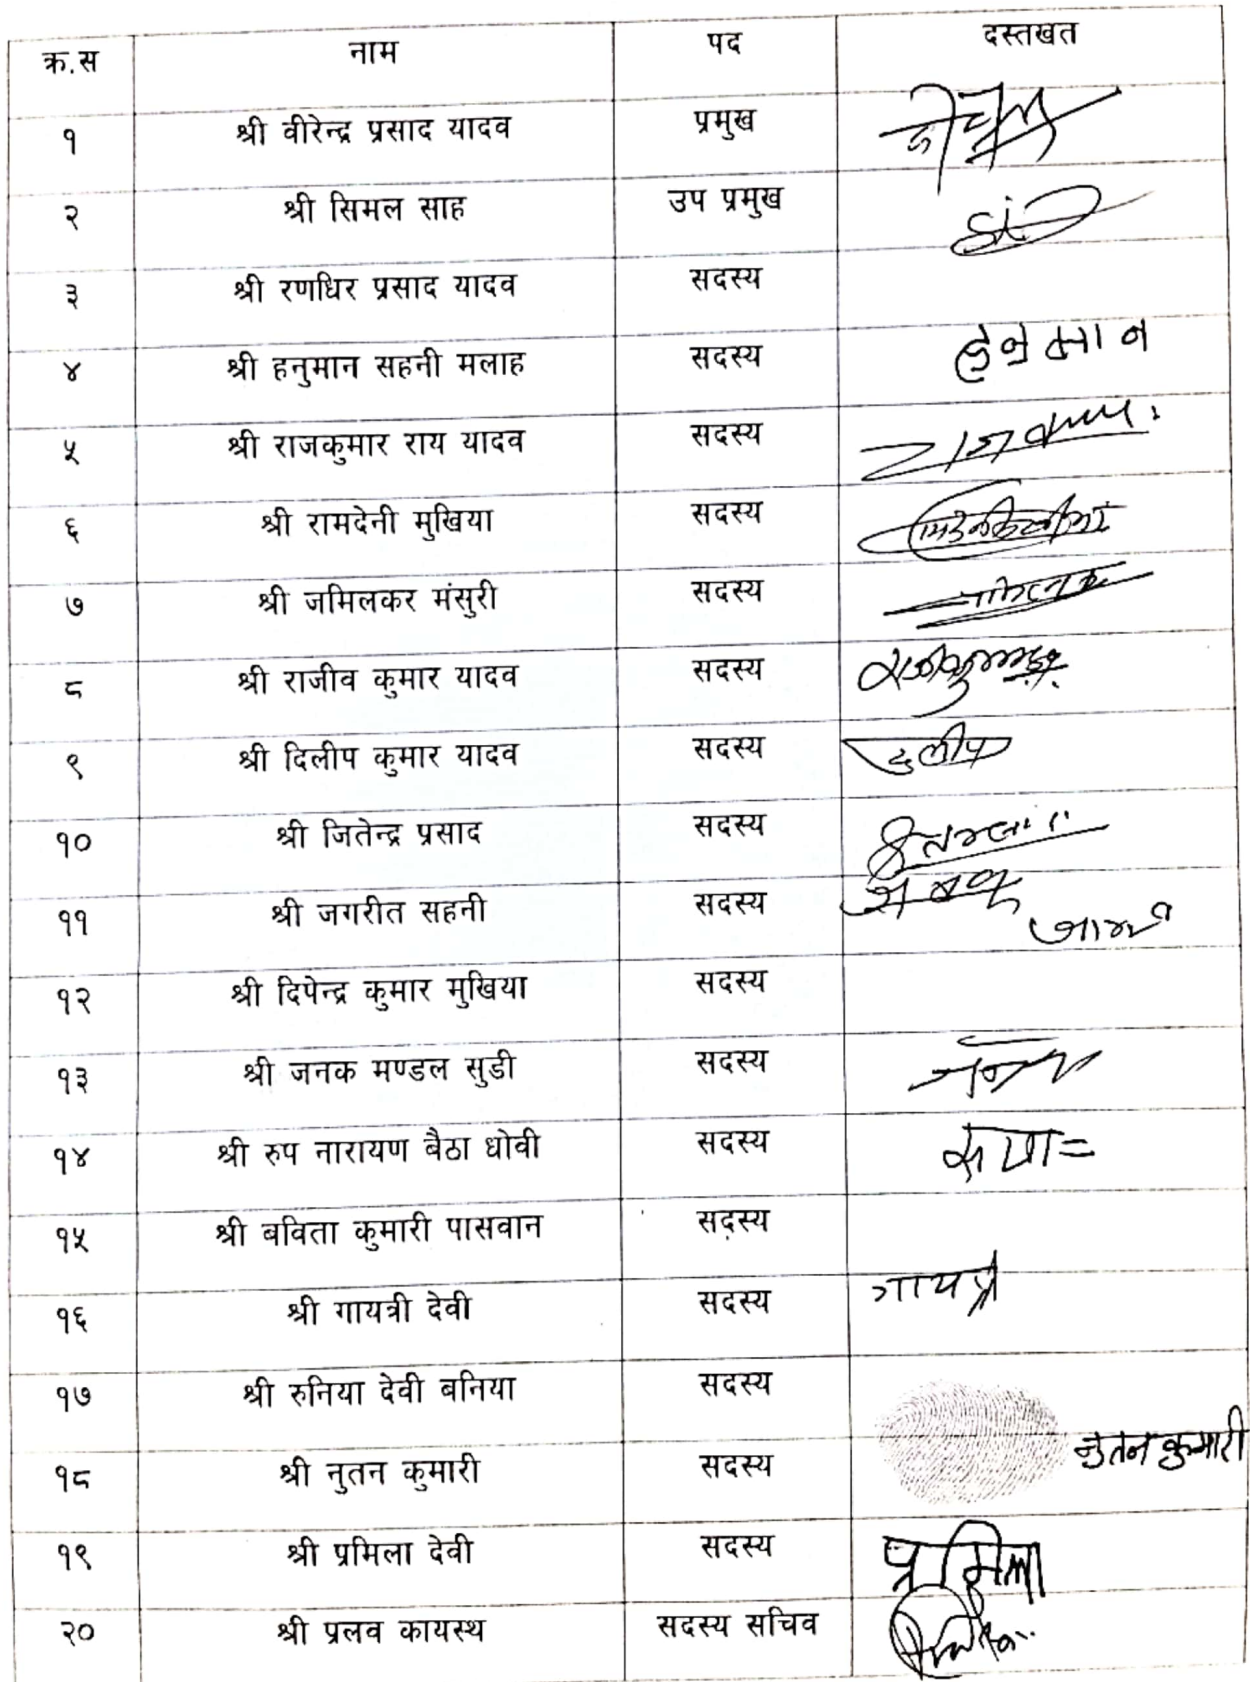 क्र.स नाम पद दस्तखत
१ श्री वीरेन्द्र प्रसाद यादव प्रमुख
२ श्री सिमल साह उप प्रमुख
३ श्री रणधिर प्रसाद यादव सदस्य
४ श्री हनुमान सहनी मलाह सदस्य हनुमान
५ श्री राजकुमार राय यादव सदस्य
६ श्री रामदेनी मुखिया सदस्य
७ श्री जमिलकर मंसुरी सदस्य
८ श्री राजीव कुमार यादव सदस्य
९ श्री दिलीप कुमार यादव सदस्य
१० श्री जितेन्द्र प्रसाद सदस्य
११ श्री जगरीत सहनी सदस्य
१२ श्री दिपेन्द्र कुमार मुखिया सदस्य
१३ श्री जनक मण्डल सुडी सदस्य
१४ श्री रुप नारायण बैठा धोवी सदस्य
१५ श्री बविता कुमारी पासवान सदस्य
१६ श्री गायत्री देवी सदस्य गायत्री
१७ श्री रुनिया देवी बनिया सदस्य
१८ श्री नुतन कुमारी सदस्य नुतन कुमारी
१९ श्री प्रमिला देवी सदस्य प्रमिला
२० श्री प्रलव कायस्थ सदस्य सचिव